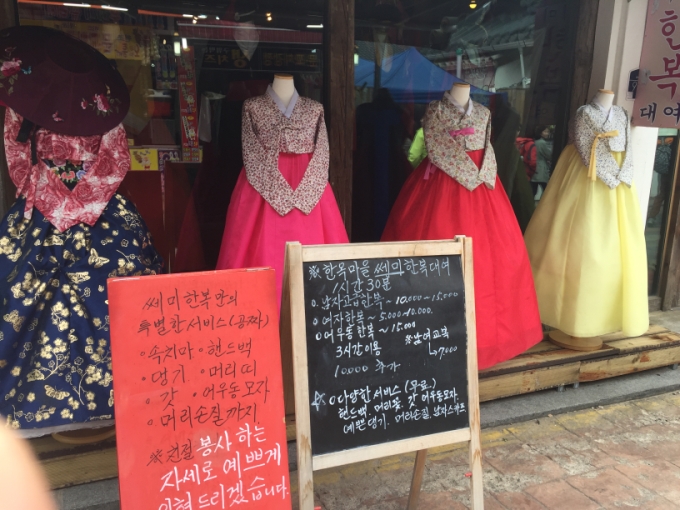 한복
대여
쎄미한복만의
특별한서비스(공짜)
• 속치마 • 핸드백
• 댕기 • 머리띠
• 갓 • 어우동모자
• 머리손질까지
※친절 봉사 하는
자세로 예쁘게
입혀 드리겠습니다.
※한복마을 쎄미한복대여
1시간 30분
o.남자고급한복~10,000~15,000
o여자한복~5,000~10,000.
o어우동한복~15,000
3시간이용 ※남여교복
10,000 추가 ↳7,000
☆o다양한서비스(무료.)
핸드백. 머리꽃. 갓 어우동모자.
예쁜댕기. 머리손질. 남자스카프